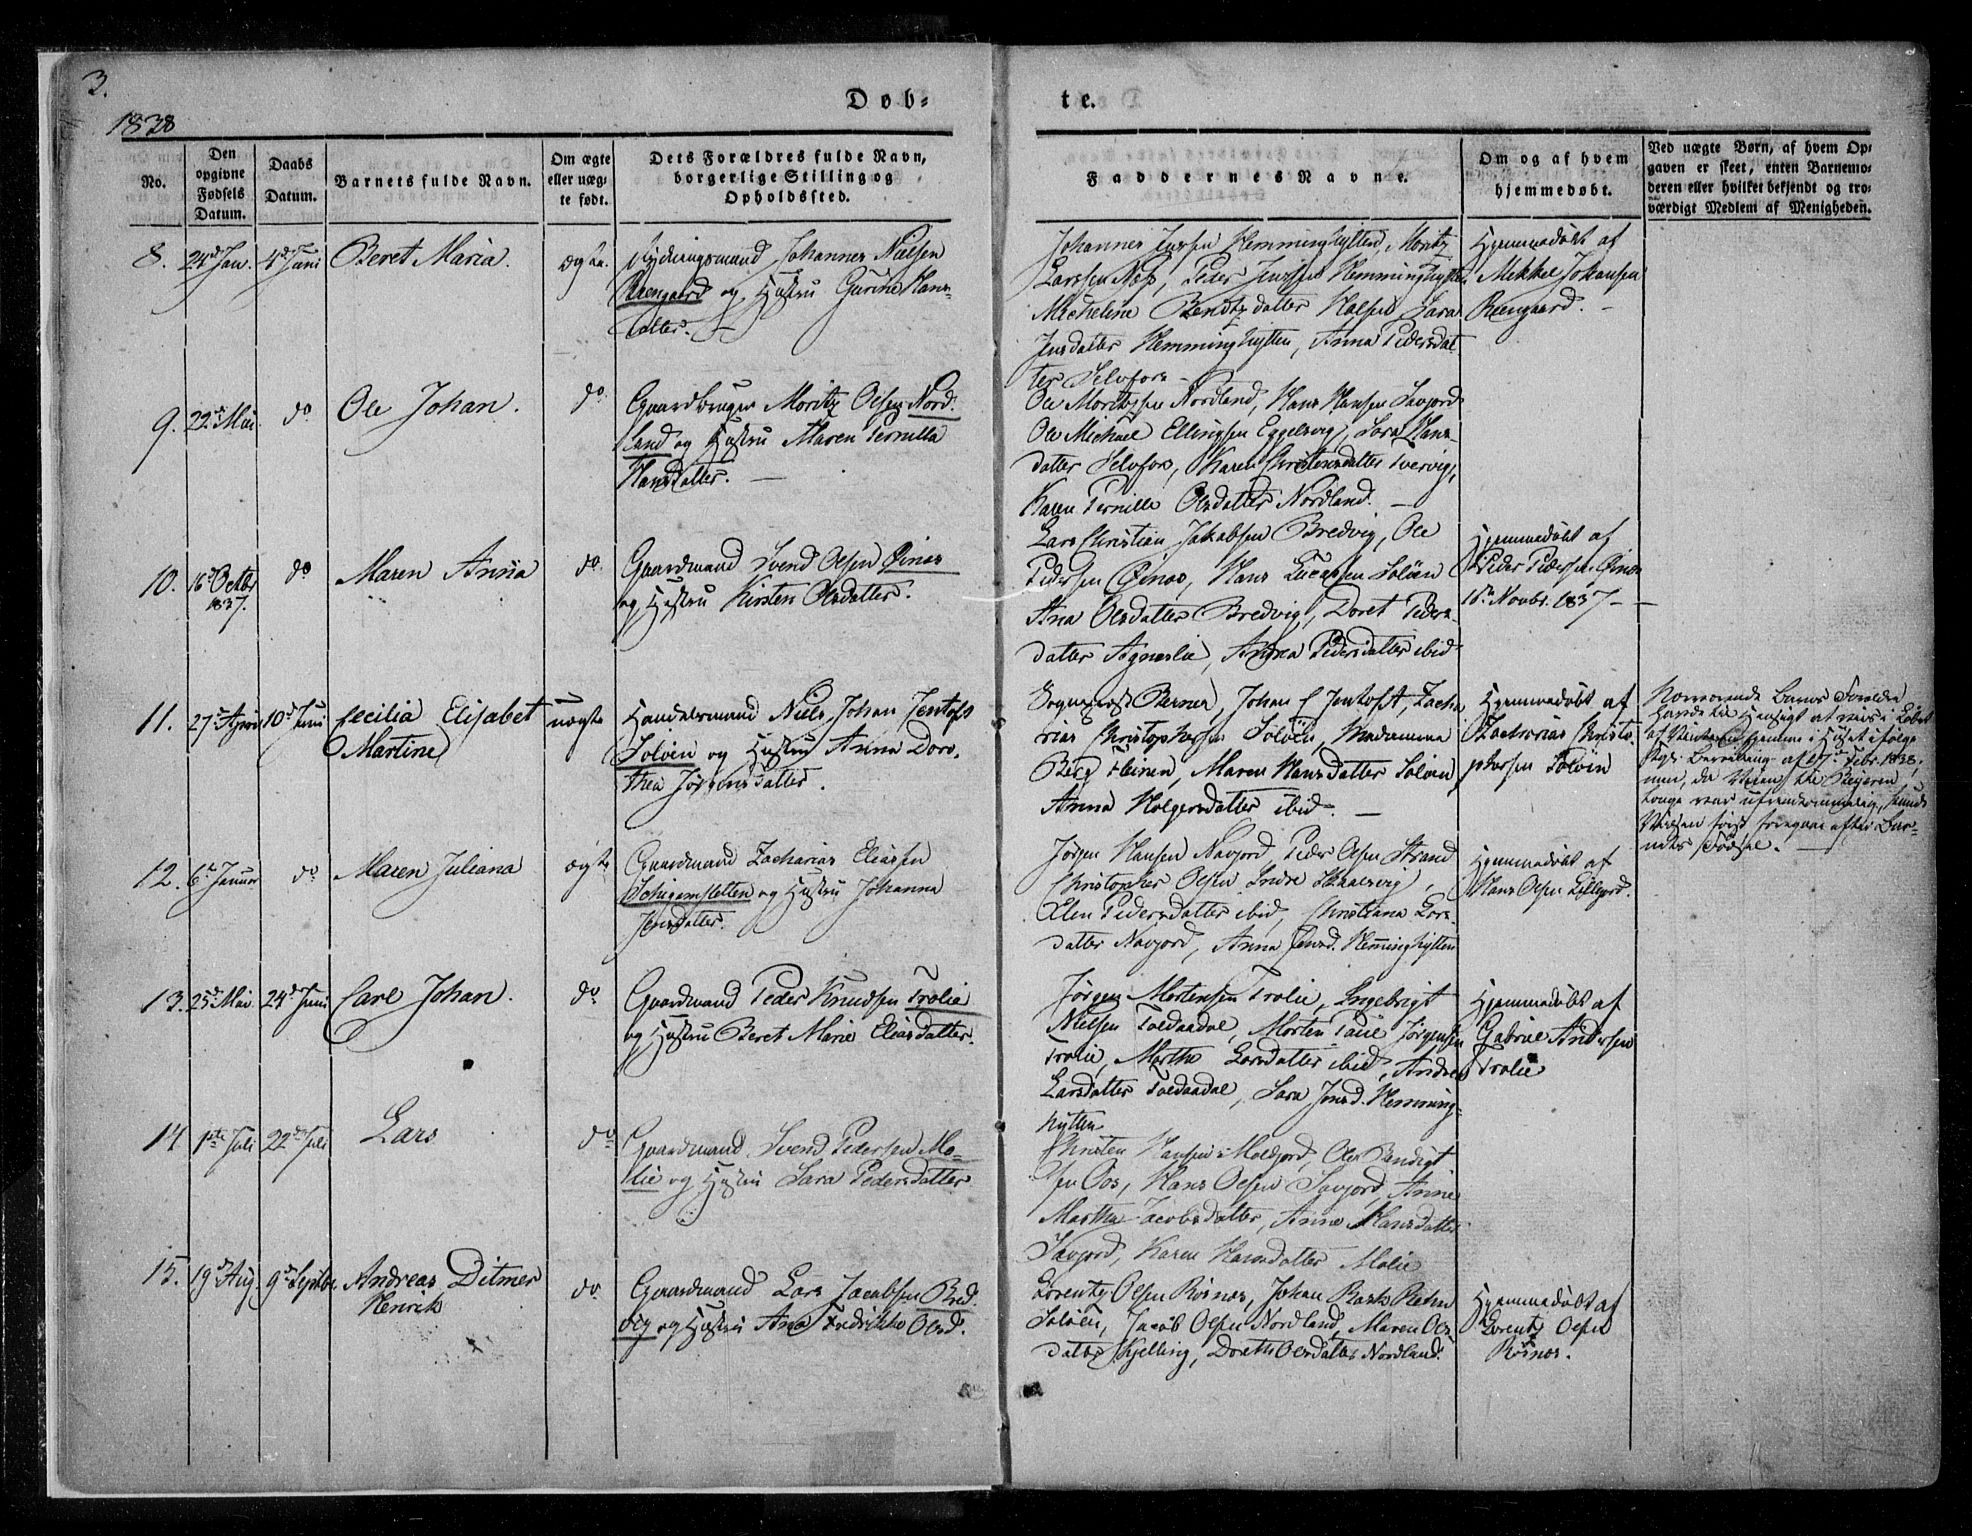 3.
Døb-
te.
1838
No.
Den
opgivne
Fødsels
Datum.
Daabs
Datum.
Barnets fulde Navn.
Om ægte
eller uæg-
te født.
Dets Forældres fulde Navn,
borgerlige Stilling og
Opholdssted.
Faddernes Navne.
Om og af hvem
hjemmedøbt.
Ved uægte Børn, af hvem Op-
gaven er skeet, enten Barnemo-
deren eller hvilket bekjendt og tro-
værdigt Medlem af Menigheden.
8. 24de Jan. 4de Juni Beret Maria. ægte.
Rydningsmand Johannes Nielsen
og Hustru Gurine Hans-
datter. —
Johannes Jensen Hemminghytten, Moritz
Larssen Næs, Peder Jensen Hemminghytten
Micheline Bendtzdatter, Sara
Jensdatter Hemminghytten, Anna Pedersdat-
ter Selvfors —
Hjemmedøbt af
Mikkel Johansen
9. 22de Mai do Ole Johan. do
Gaardbruger Moritz Olsen Nord-
land og Hustru Maren Pernilla
Hansdatter. —
Ole Moritzsen Nordland, Hans Hansen Savjord
Ole Michael Ellingsen Eggesvig, Sara Hans-
datter Selvfors, Karen Christensdatter Tvervig,
Karen Pernille Olsdatter Nordland. —
10. 16de Octbr 1837. do Maren Anna do
Gaardmand Svend Olsen Øinæs
og Hustru Kirsten Olsdatter.
Lars Christian Jakobsen Bredvig, Ole
Pedersen Øinæs, Hans Lucassen Soløen
Ana Olsdatter Bredvig, Doret Peders-
datter Agneslie, Andrea Pedersdatter ibid
Hjemmedøbt af
Peder Pedersen Øinæs
Novbr. 1837 —
11. 27de April 10de Juni Cecilia Elisabet
Martine uægte
Handelsmand Niels Johan Jentoft
Soløen og Hustru Anna Doro-
thea Jørgensdatter.
Sognepræst Berner, Johan C Jentoft, Zacha
rias Christophersen Soløen, Madamme
Berg, Maren Hansdatter Soløen
Anna Holgersdatter ibid —
Hjemmedøbt af
Zacharias Christo-
phersen Soløen
Nærværende Barns Forældre
havde til Hensigt at
hjemme i Huset ifølge
Kgl. Bevilling af 17de Febr. 1838,
men, da Veien til Beieren
længe var ufremkommelig, kunde
Vielsen først foregaae efter Bar-
nets Fødsel. —
12. 6te Januar do Maren Juliana ægte
Gaardmand Zacharias Eliassen
og Hustru Johanna
Jensdatter.
Jørgen Hansen Navjord, Peder Olsen Strand
Christopher Olsen Indre,
Elen Pedersdatter ibid, Christiana Lars-
datter Navjord, Anna Jensd. Hemminghytten
Hjemmedøbt af
Hans Olsen
13. 25de Mai 24de Juni Carl Johan. do
Gaardmand Peder Knudsen Trolie
og Hustru Beret Marie Eliasdatter.
Jørgen Mortensen Trolie, Ingebrigt
Nielsen Toldaadal, Morten Paul Jørgensen
Trolie, Martha Larsdatter ibid, Andrea
Larsdatter Toldaadal, Sara Jensd. Hemming-
hytten
Hjemmedøbt af
Gabriel Andersen
Trolie
14 1ste Juli 22de Juli Lars do
Gaardmand Svend Pedersen Mo-
lie og Hustru Sara Pedersdatter
Christen Hansen Moldjord, Ole Bendigt
sen Oos, Hans Olsen Savjord, Anne
Martha Jacobsdatter, Anne Hansdatter
Savjord, Karen Hansdatter Molie
15. 19de Aug. 9de Septbr. Andreas Ditmer
Henrik do
Gaardmand Lars Jacobsen Bred-
vig og Hustru Ana Fredrikke Olsd.
Lorentz Olsen Røsnæs, Johan
Soløen, Jacob Olsen Nordland, Maren Ols-
datter Kjelling, Doreth Olsdatter Nordland.
Hjemmedøbt af
Lorentz Olsen
Røsnæs.